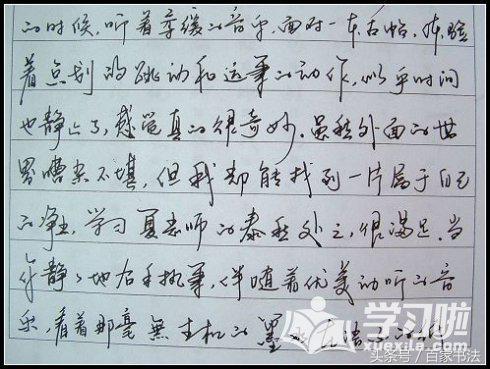 的时候,听着舒缓的音乐,面对一本古帖,体验
着点划的跳动和运笔的动作,似乎时间
也静止了,感觉真的很奇妙。虽然外面的世
界嘈杂不堪,但我却能找到一片属于自己
的净土,学习夏老师的泰然处之,很满足。当
你静静地右手执笔,伴随着优美动听的音
乐,看着那毫無生机的墨
学习啦
xuexila.com
头条号/百家书法